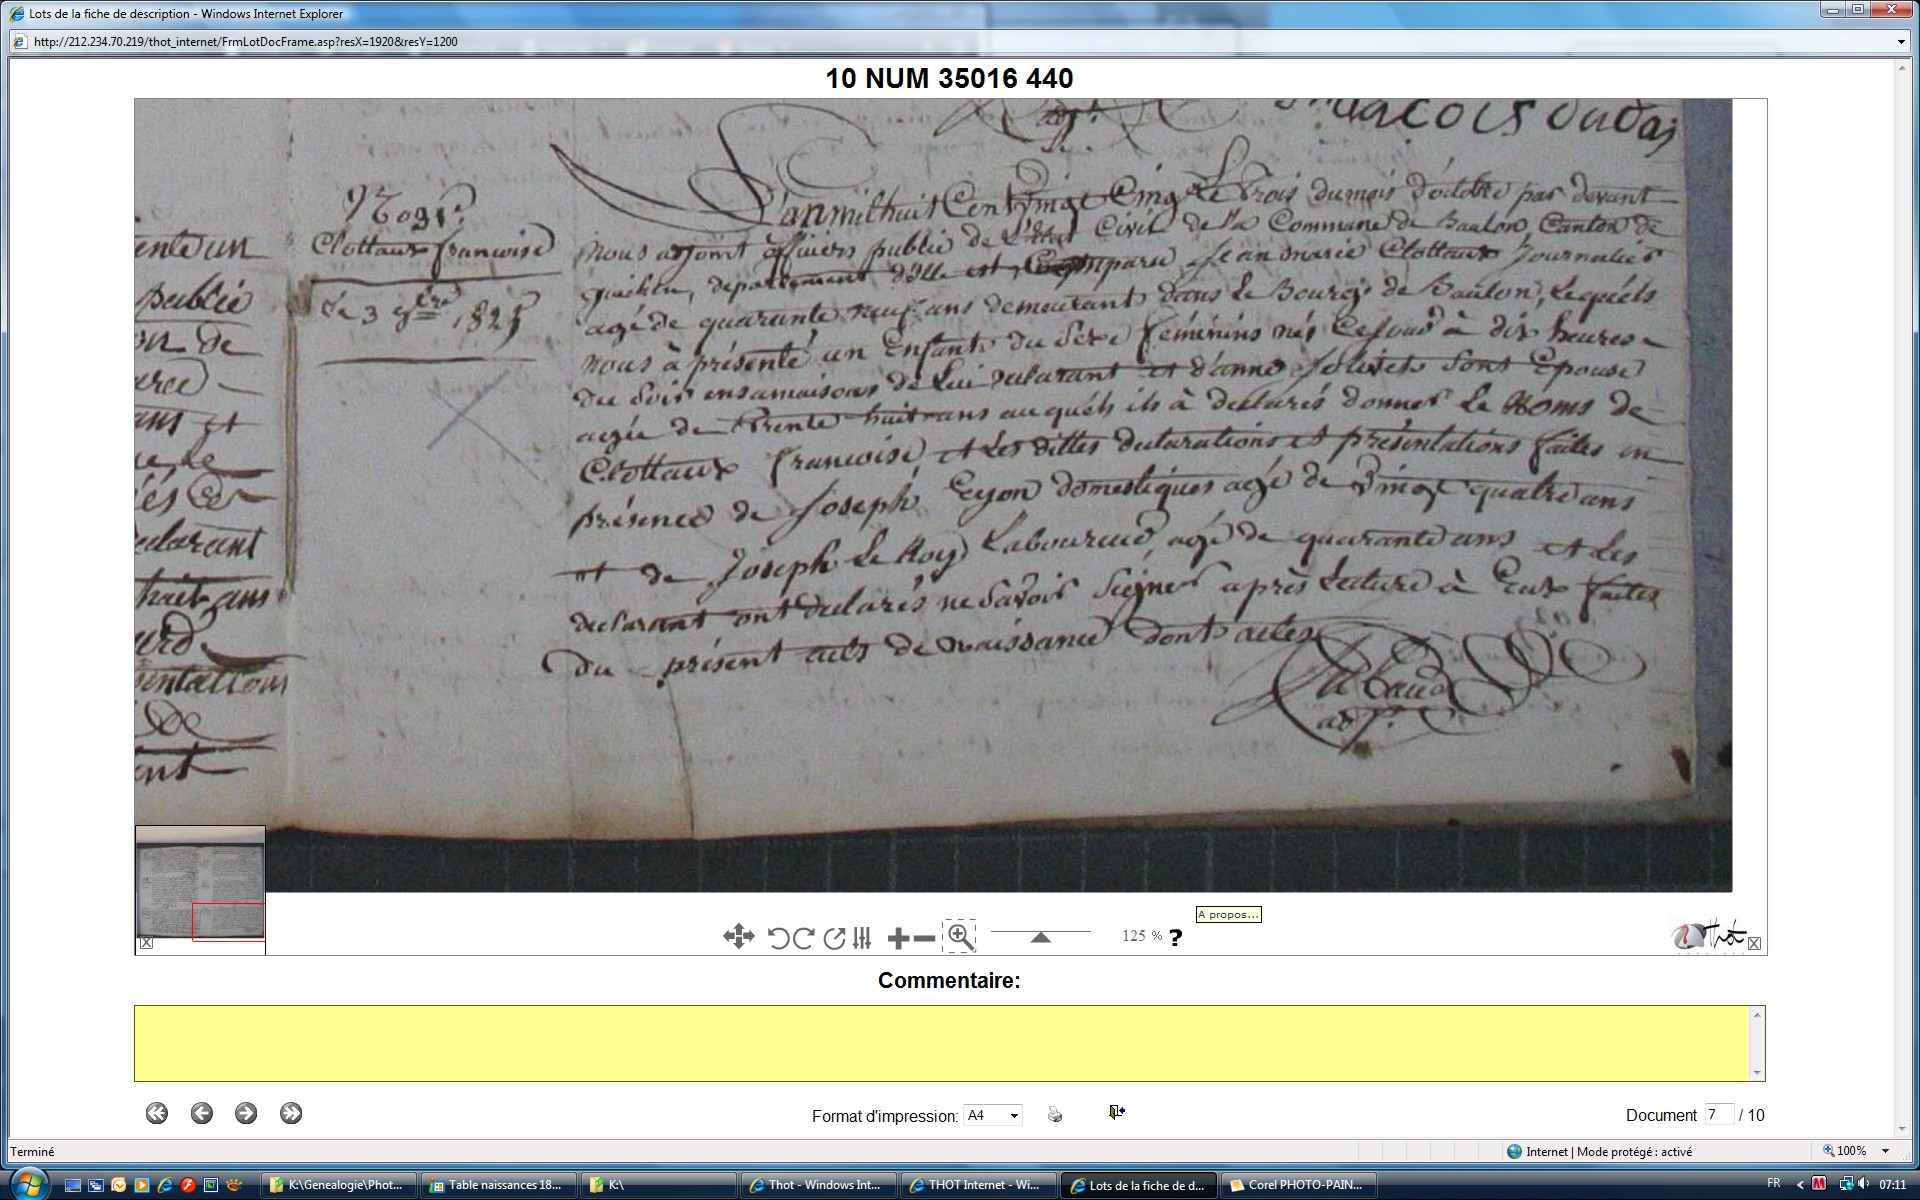 Lots de la fiche de description - Windows Internet Explorer
http://212.234.70.219/thot_internet/FrmLotDocFrame.asp?resX=1920&resY=1200
10 NUM 35016 440
adj.
Clottaux francoise
Le 3 8bre 1825
L'an mil huit Cent Vingt Cinq Le trois du mois d'octobre par devant
nous adjoint officiers public de L'état Civil de la Commune de Baulon, Canton de
guichen, departement d'ille et, Comparu Jean marie Clottaux Journalier
agé de quarante neuf ans demeurant dans Le Bourg de Baulon, Lequels
nous à présenté un Enfant du Sexe féminins nés Ce jour à dix heures
du Soir en sa maison de Lui declarant et d'anne Sont Epouse
agée de trente huit ans auquels ils à declarés donner Le Noms de
Clottaux francoise et Les dittes declarations et présentations faites en
présence de Joseph domestiques agé de Vingt quatre ans
et de Joseph Le Roy Laboureur, agé de quarante ans et Les
declarant ont declarés ne Savoir Signer après Lecture à Eux faites
du présent acte de naissance dont actes
adj.
ente un
public
on de
ans et
declarant
huit ans
sentations
de
ent
A propos...
125 % ?
Thot
Commentaire:
Format d'impression: A4
Document 7 / 10
Terminé
Internet | Mode protégé : activé
100%
K:\Genealogie\Phot...
Table naissances 18...
K:\
Thot - Windows Int...
THOT Internet - Wi...
Lots de la fiche de d...
Corel PHOTO-PAIN...
FR
07:11